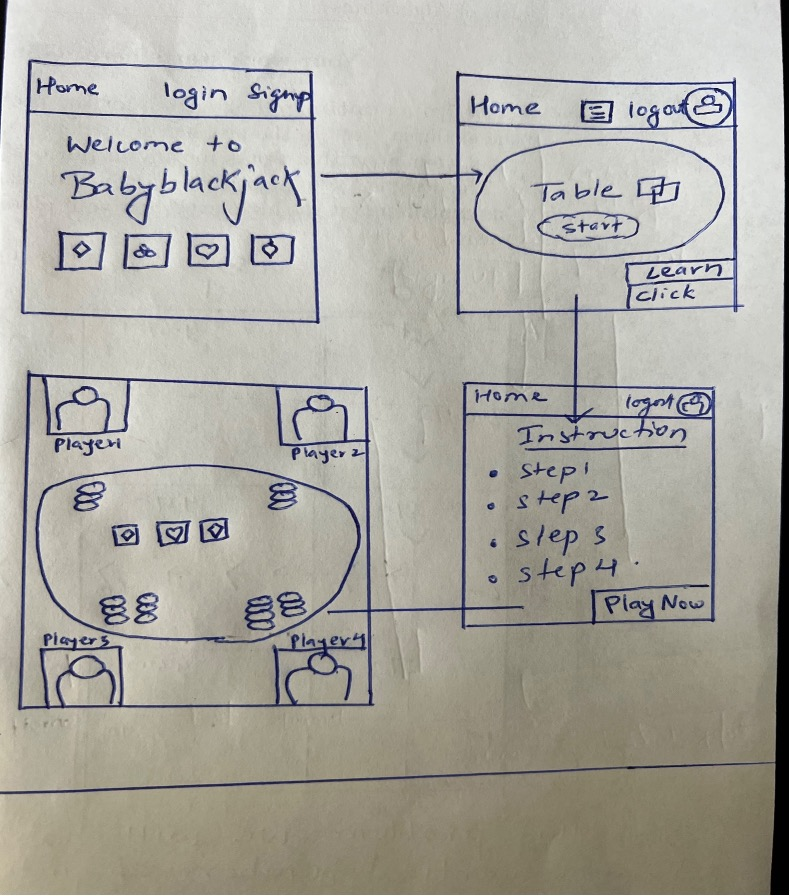 Home login Signup
Welcome to
Babyblackjack
Home logout
Table
start
Learn
Click
Home logout
Instruction
• Step 1
• step 2
• step 3
• step 4
Play Now
Player1
Player 2
Player3
Player4